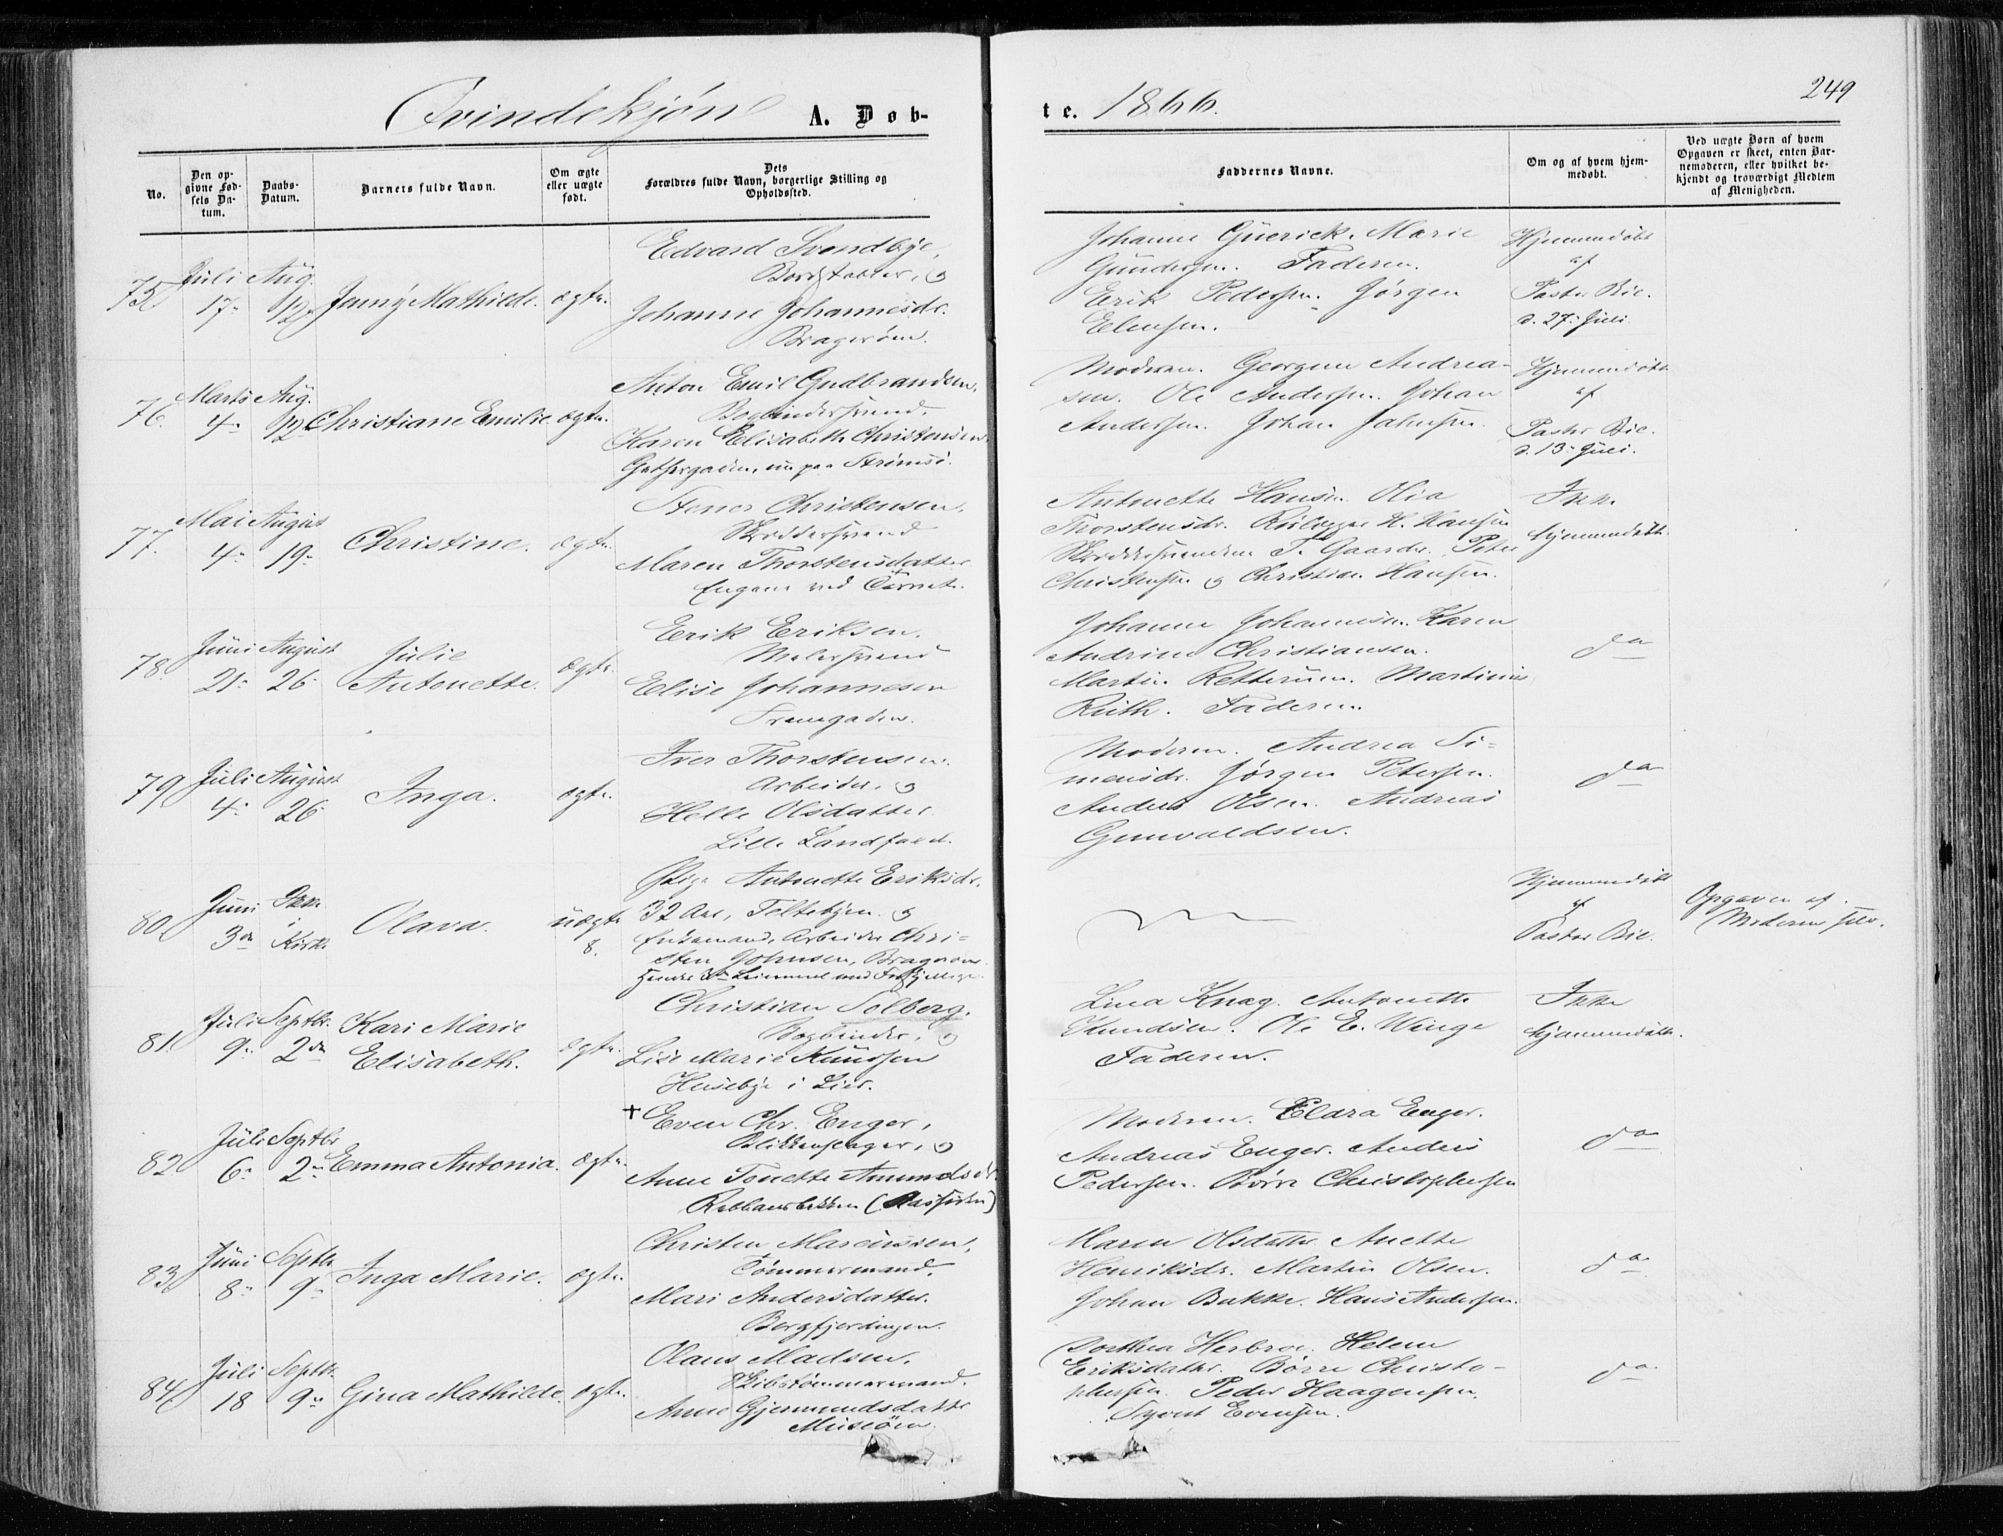 249
Qvindekjøn A. Døb-
te. 1866.
No.
Den op-
givne Fød-
sels Da-
tum.
Daabs-
Datum.
Barnets fulde Navn.
Om ægte
eller uægte
født.
Dets
Forældres fulde Navn, borgerlige Stilling og
Opholdssted.
Faddernes Navne.
Om og af hvem hjem-
medøbt.
Ved uægte Børn af hvem
Opgaven er skeet, enten Bar-
nemoderen, eller hvilket be-
kjendt og troværdigt Medlem
af Menigheden.
75
Juli
17
Aug.
12
Jenny Mathilde.
ægte.
Edvard Svendbye,
Bordstabler, og
Johanne Johannesdr.
Bragerøen.
Johanne Guerick. Marie
Gundersen. Faderen.
Erik Pedersen. Jørgen
Ellensen.
Hjemmedøbt
af
Pastor Bie.
d. 27. Juli.
76.
Marts
4
Aug.
12
Christiane Emilie
ægte.
Anton Emil Gudbrandsen,
Bogbindersvend.
Karen Elisabeth Christensen
nu paa Strømsø.
Moderen. Georgine Andrea-
sen. Ole Andersen. Johan
Andersen. Johan Jahnsen.
Hjemmedøbt
af
Pastor Bie.
d. 13. Juli.
77.
Mai
4
August
19
Christine.
ægte.
Christensen,
Skræddersvend
Maren Thorstensdatter
Engene ved Taarnet.
Antonette Hansen. Olia
Thorstensdr. H. Hansen
Skræddersvendene T. Gaarder. Peter
Christensen og Christian Hansen.
Ikke
hjemmedøbt.
78.
Juni
21
August
26
Julie
Antonette.
ægte.
Erik Eriksen.
Malersvend
Elise Johannesen
Tverrgaden.
Johanne Johannesen. Karen
Andrine Christiansen.
Martin Petterson. Martinius
Ruth. Faderen.
do
79.
Juli
4
August
26
Inga.
ægte.
Iver Thorstensen.
Arbeider, og
Helle Olsdatter.
Lille Landfald.
Moderen. Andrea Si-
mensdr. Jørgen Petersen.
Anders Olsen. Andreas
Gunvaldsen.
do
80.
Juni
3die
Ikke
i
Kirke
Olava.
uægte
8.
Pige Antonette Eriksdr.
32 Aar, Toltebyen. og
Enkemand, Arbeider Chri-
sten Johnsen, Bragerøen.
Hendes 2det Leiermaal med Forskjellige.
Hjemmedøbt
af
Pastor Bie.
Opgaven af
Moderen selv.
81.
Juli
9
Septbr.
2den
Kari Marie
Elisabeth.
ægte.
Christian Solberg.
Bogbinder, og
Lise Marie Knudsen
Husebye i Lier.
Lina Knag. Antonette
Knudsen. Ole E. Winge
Faderen.
Ikke
hjemmedøbt.
82
Juli
6
Septbr
2
Emma Antonia.
ægte.
+ Even Chr. Enger,
Blikkenslager, og
Anne Tonette Amundsdr.
Moderen. Clara Enger.
Andreas Enger. Anders
Pedersen. Børre Christophersen
do
83
Juni
8
Septbr
9
Inga Marie.
ægte.
Christen Marcussen,
Tømmermand.
Mari Andersdatter.
Bergfjerdingen.
Maren Olsdatter Anette
Henriksdr. Martin Olsen.
Johan Bakke. Hans Andersen.
do
84.
Juli
18
Septbr.
9
Gina Mathilde.
ægte.
Olaus Madsen.
Skibstømmermand.
Anne Gjermundsdatter
Musiøen.
Dorthea Herbroe. Helene
Eriksdatter. Børre Christo-
phersen. Peder Haagensen.
Syvert Evensen.
do